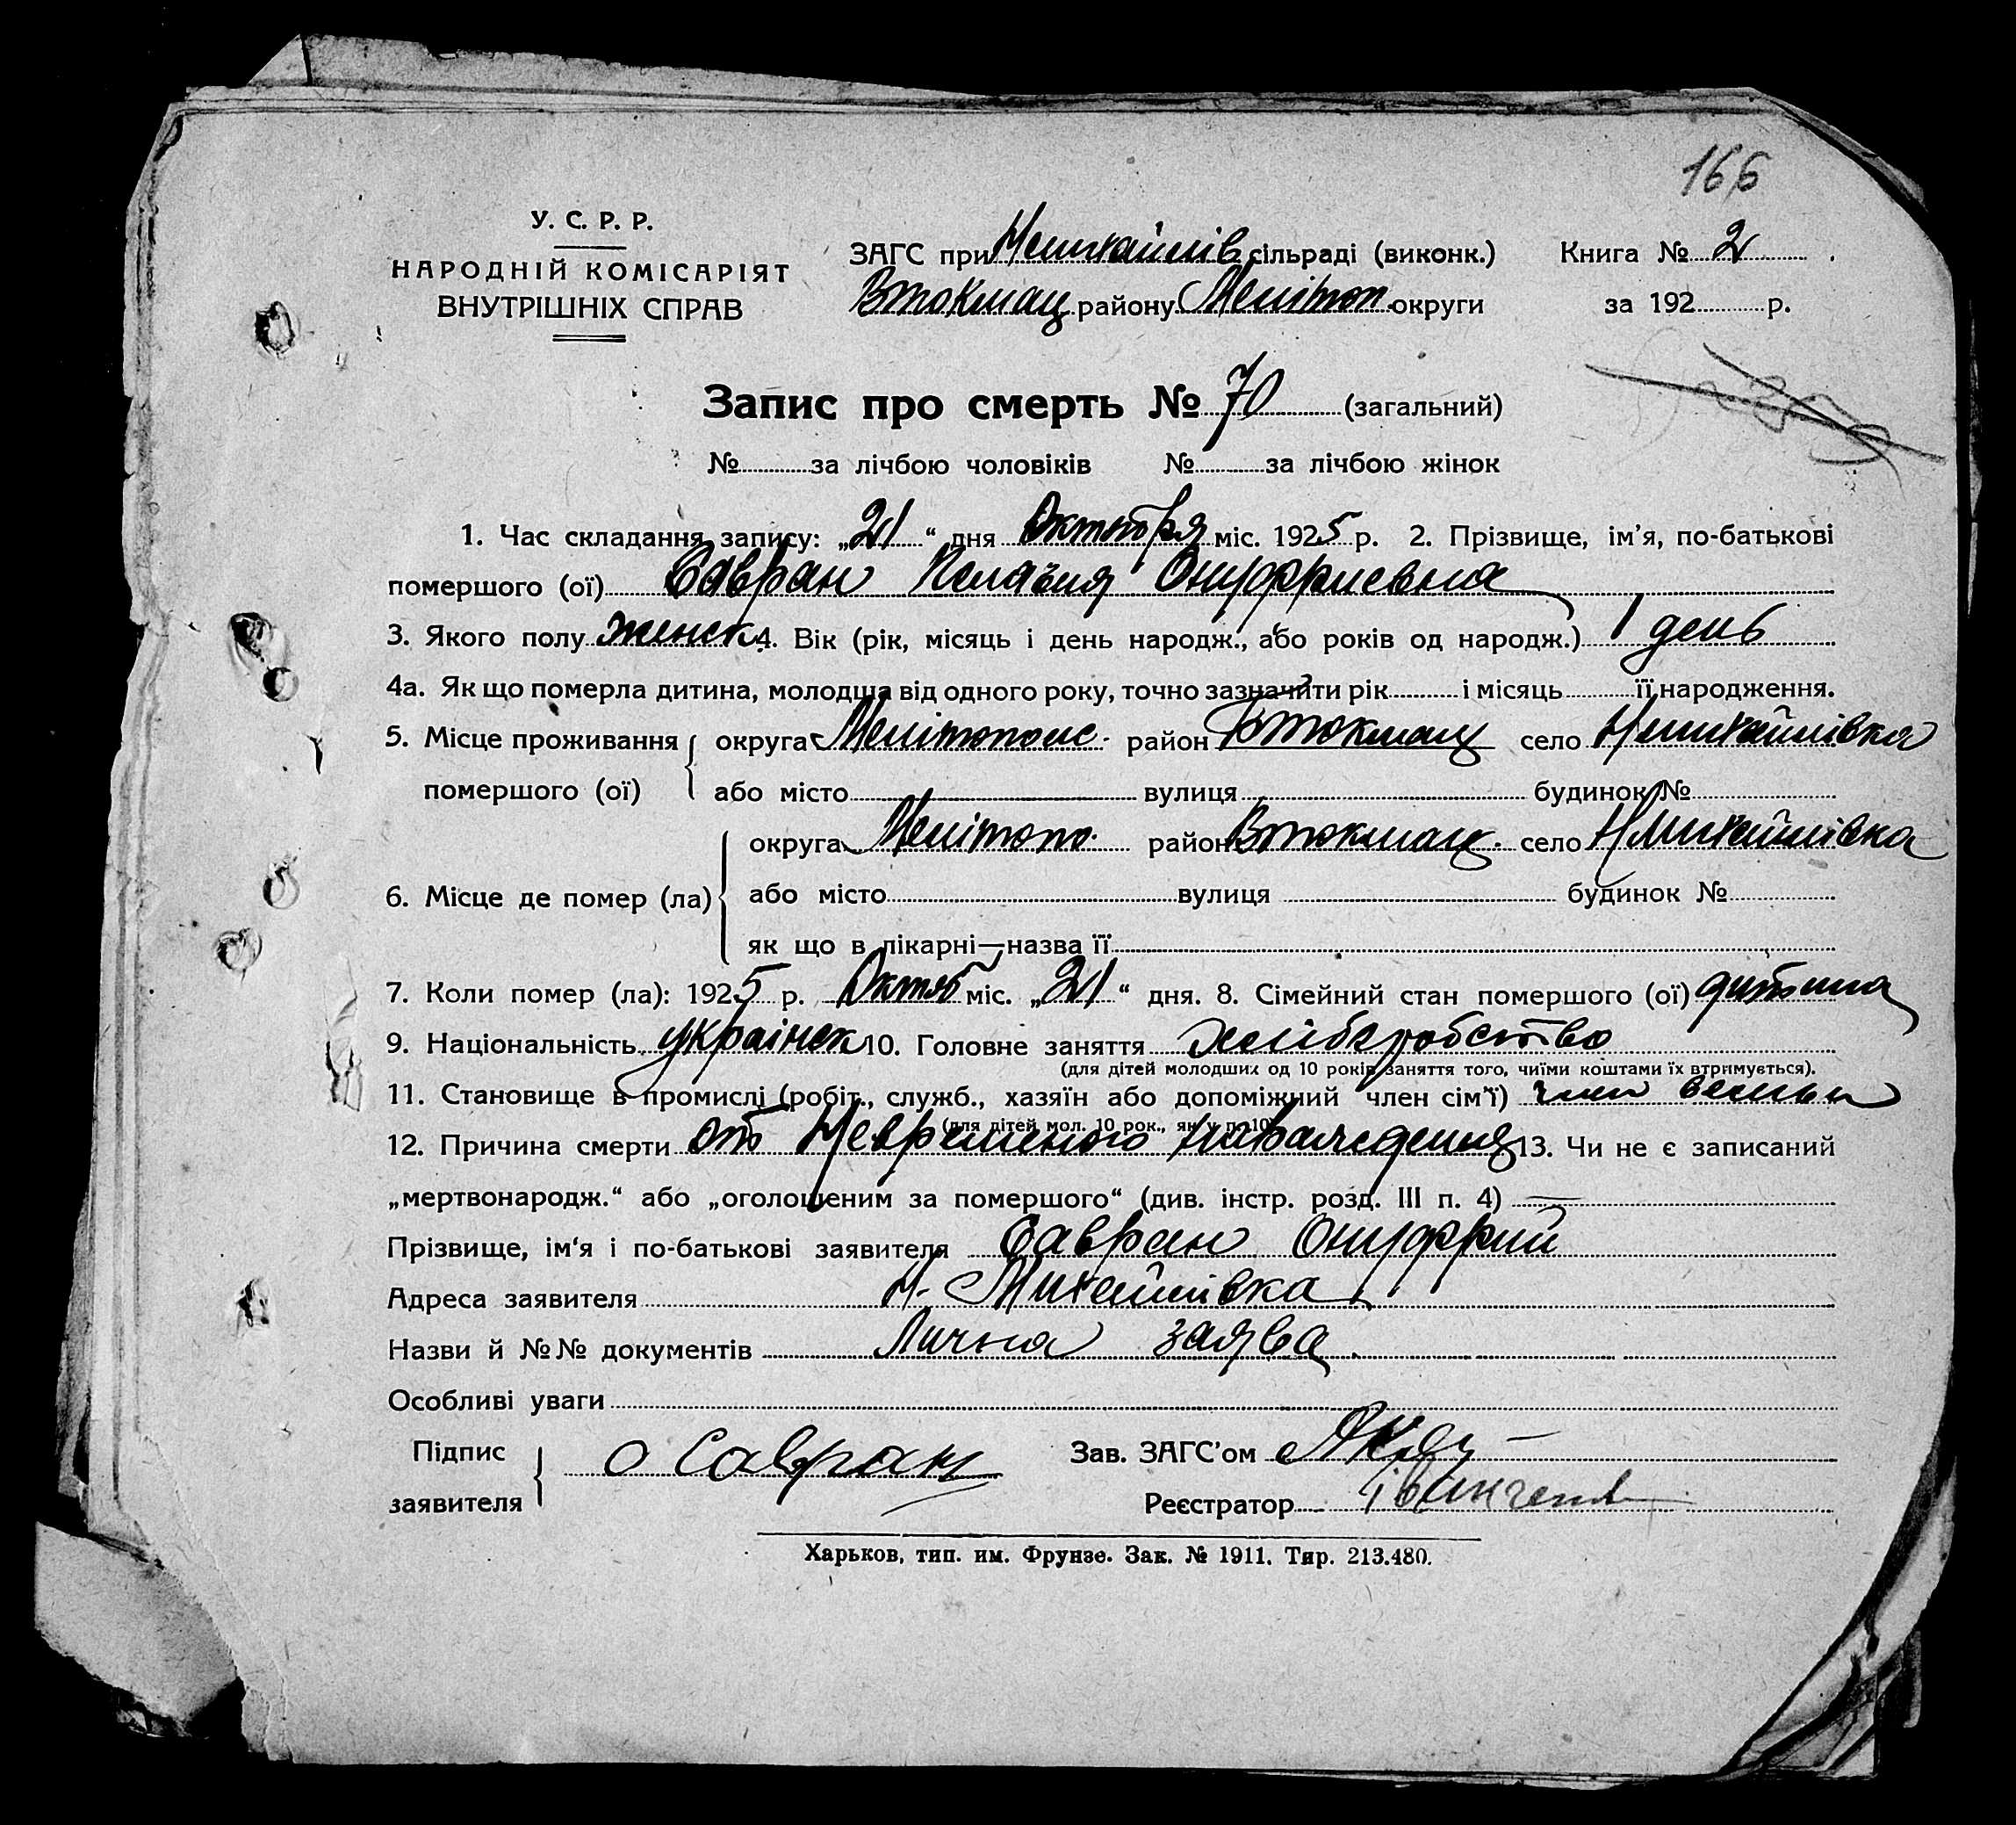 166
У. С. Р. Р.
НАРОДНІЙ КОМІСАРІЯТ
ВНУТРІШНІХ СПРАВ
ЗАГС при Н михайлів сільраді (виконк.) Книга № 2
Втокмац району Мелітоп. округи за 192 р.
Запис про смерть № 70 (загальний)
№ за лічбою чоловіків № за лічбою жінок
1. Час складання запису: „21“ дня Октября міс. 1925 р. 2. Прізвище, ім'я, по-батькові
помершого (ої) Савран Пелагия Онуфриевна
3. Якого полу женск 4. Вік (рік, місяць і день народж., або років од народж.) 1 день
4а. Як що померла дитина, молодша від одного року, точно зазначити рік і місяць її народження.
5. Місце проживання округа Мелітопольс. район Втокмац село Н михайлівка
помершого (ої) або місто вулиця будинок №
округа Мелітопо. район Втокмац. село Н Михайлівка
6. Місце де помер (ла) або місто вулиця будинок №
як що в лікарні—назва її
7. Коли помер (ла): 1925 р. Октяб міс. „21“ дня. 8. Сімейний стан помершого (ої) дитина
9. Національність українск 10. Головне заняття хліборобство
(для дітей молодших од 10 років заняття того, чиїми коштами їх втримується).
11. Становище в промислі (робіт., служб., хазяїн або допоміжний член сім'ї) член семьи
(для дітей мол. 10 рок., як у п. 10)
12. Причина смерти от 13. Чи не є записаний
„мертвонародж.“ або „оголошеним за помершого“ (див. інстр. розд. III п. 4) —
Прізвище, ім'я і по-батькові заявителя Савран Онуфрий
Адреса заявителя Н. Михайлівка
Назви й №№ документів Лична заява.
Особливі уваги
Підпис
заявителя О Савран
Зав. ЗАГС'ом
Реєстратор
Харьков, тип. им. Фрунзе. Зак. № 1911. Тир. 213.480.